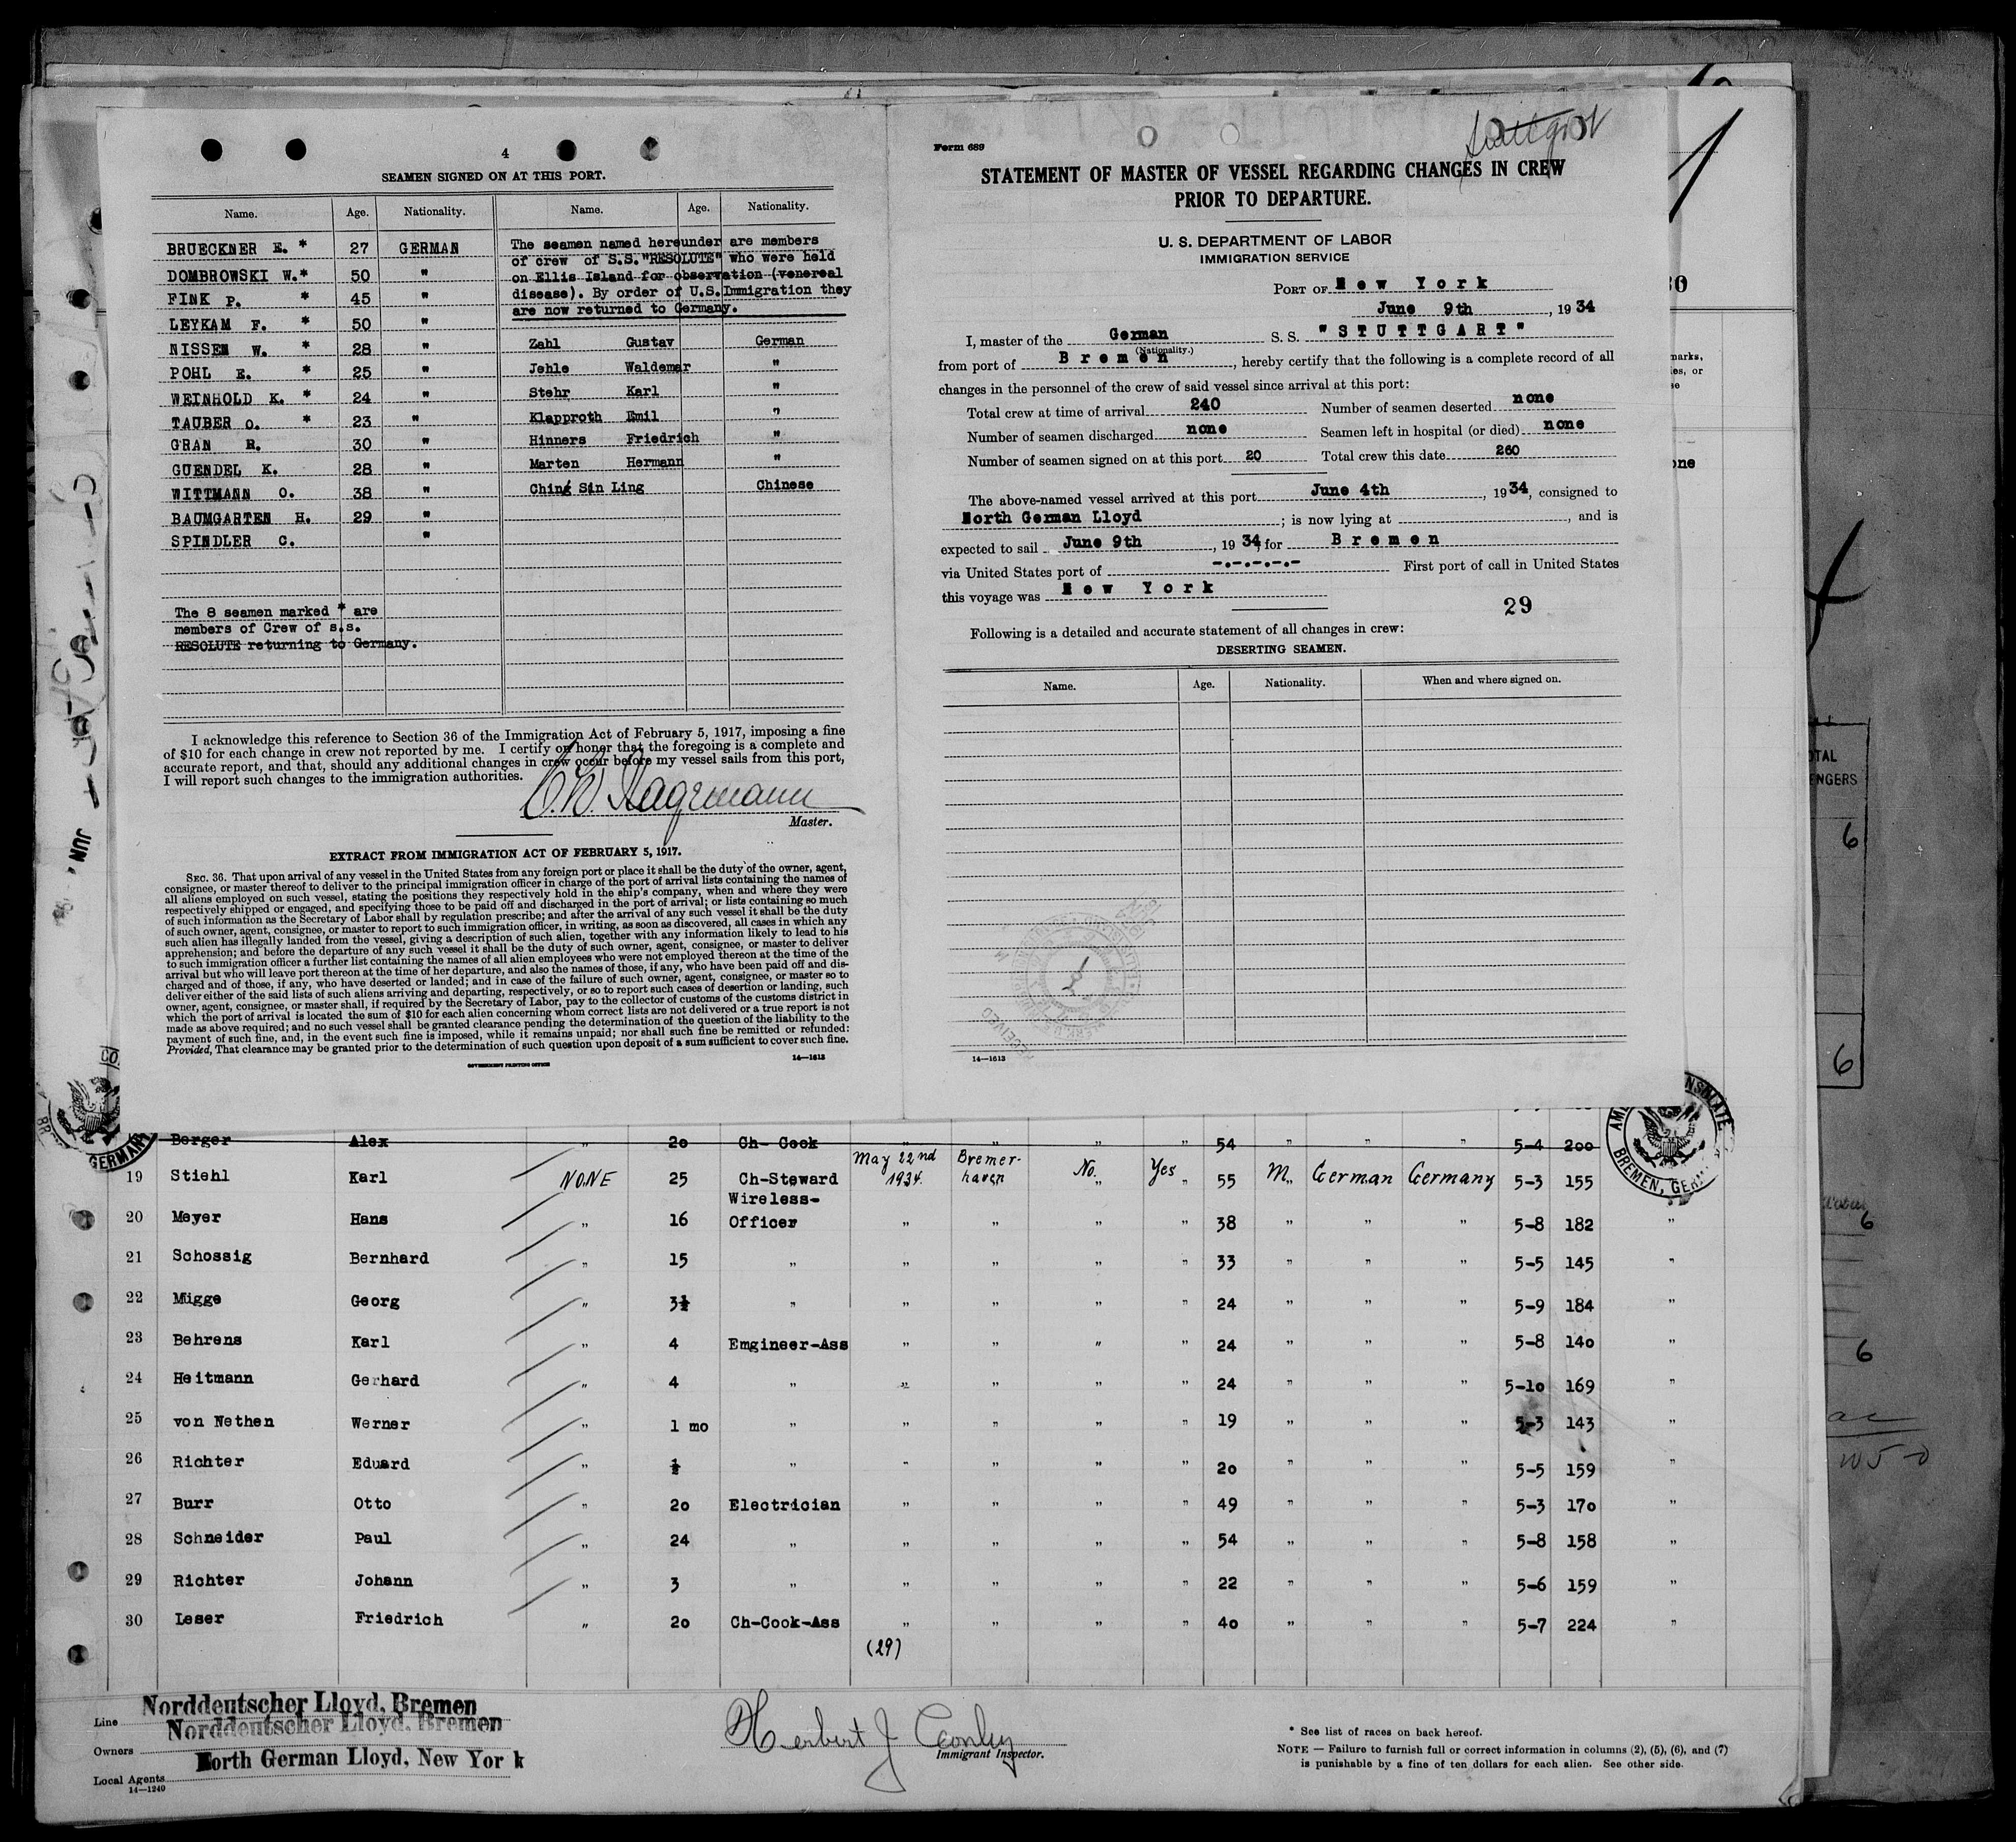 4
SEAMEN SIGNED ON AT THIS PORT.
Name. Age. Nationality. Name. Age. Nationality.
BRUECKNER E. * 27 GERMAN
DOMBROWSKI W.* 50 "
FINK P. * 45 "
LEYKAM F. * 50 "
NISSEN W. * 28 "
POHL E. * 25 "
WEINHOLD K. * 24 "
TAUBER O. * 23 "
GRAN R. 30 "
GUENDEL K. 28 "
WITTMANN O. 38 "
BAUMGARTEN H. 29 "
SPINDLER C. "
The 8 seamen marked * are
members of Crew of s.s.
RESOLUTE returning to Germany.
The seamen named hereunder are members
of crew of S.S."RESOLUTE" who were held
on Ellis Island for observation (venereal
disease). By order of U.S.Immigration they
are now returned to Germany.
Zahl Gustav German
Jehle Waldemar "
Stehr Karl "
Klapproth Emil "
Hinners Friedrich "
Marten Hermann "
Ching Sin Ling Chinese
I acknowledge this reference to Section 36 of the Immigration Act of February 5, 1917, imposing a fine
of $10 for each change in crew not reported by me. I certify on honor that the foregoing is a complete and
accurate report, and that, should any additional changes in crew occur before my vessel sails from this port,
I will report such changes to the immigration authorities.
Hagemann
Master.
EXTRACT FROM IMMIGRATION ACT OF FEBRUARY 5, 1917.
SEC. 36. That upon arrival of any vessel in the United States from any foreign port or place it shall be the duty of the owner, agent,
consignee, or master thereof to deliver to the principal immigration officer in charge of the port of arrival lists containing the names of
all aliens employed on such vessel, stating the positions they respectively hold in the ship's company, when and where they were
respectively shipped or engaged, and specifying those to be paid off and discharged in the port of arrival; or lists containing so much
of such information as the Secretary of Labor shall by regulation prescribe; and after the arrival of any such vessel it shall be the duty
of such owner, agent, consignee, or master to report to such immigration officer, in writing, as soon as discovered, all cases in which any
such alien has illegally landed from the vessel, giving a description of such alien, together with any information likely to lead to his
apprehension; and before the departure of any such vessel it shall be the duty of such owner, agent, consignee, or master to deliver
to such immigration officer a further list containing the names of all alien employees who were not employed thereon at the time of the
arrival but who will leave port thereon at the time of her departure, and also the names of those, if any, who have been paid off and dis-
charged and of those, if any, who have deserted or landed; and in case of the failure of such owner, agent, consignee, or master so to
deliver either of the said lists of such aliens arriving and departing, respectively, or so to report such cases of desertion or landing, such
owner, agent, consignee, or master, shall, if required by the Secretary of Labor, pay to the collector of customs of the customs district in
which the port of arrival is located the sum of $10 for each alien concerning whom correct lists are not delivered or a true report is not
made as above required; and no such vessel shall be granted clearance pending the determination of the question of the liability to the
payment of such fine, and, in the event such fine is imposed, while it remains unpaid; nor shall such fine be remitted or refunded:
Provided, That clearance may be granted prior to the determination of such question upon deposit of a sum sufficient to cover such fine.
14—1613
GOVERNMENT PRINTING OFFICE
Stuttgart
Form 689
STATEMENT OF MASTER OF VESSEL REGARDING CHANGES IN CREW
PRIOR TO DEPARTURE.
U. S. DEPARTMENT OF LABOR
IMMIGRATION SERVICE
PORT OF New York
June 9th, 1934
I, master of the German S. S. "STUTTGART"
(Nationality.)
from port of Bremen, hereby certify that the following is a complete record of all
changes in the personnel of the crew of said vessel since arrival at this port:
Total crew at time of arrival 240 Number of seamen deserted none
Number of seamen discharged none Seamen left in hospital (or died) none
Number of seamen signed on at this port 20 Total crew this date 260
The above-named vessel arrived at this port June 4th, 1934, consigned to
North German Lloyd; is now lying at , and is
expected to sail June 9th, 1934, for Bremen
via United States port of -.-.-.-.-.- First port of call in United States
this voyage was New York
29
Following is a detailed and accurate statement of all changes in crew:
DESERTING SEAMEN.
Name. Age. Nationality. When and where signed on.
RECEIVED
14—1613
Berger Alex " 20 Ch- Cook " " " " 54 " " " 5-4 200
19 Stiehl Karl NONE 25 Ch-Steward May 22nd 1934. Bremer-haven No. Yes 55 M. German Germany 5-3 155
20 Meyer Hans " 16 Wireless-Officer " " " " 38 " " " 5-8 182 "
21 Schossig Bernhard " 15 " " " " " 33 " " " 5-5 145 "
22 Mügge Georg " 3½ " " " " " 24 " " " 5-9 184 "
23 Behrens Karl " 4 Emgineer-Ass " " " " 24 " " " 5-8 140 "
24 Heitmann Gerhard " 4 " " " " " 24 " " " 5-10 169 "
25 von Nethen Werner " 1 mo " " " " " 19 " " " 5-3 143 "
26 Richter Eduard " ½ " " " " " 20 " " " 5-5 159 "
27 Burr Otto " 20 Electrician " " " " 49 " " " 5-3 170 "
28 Schneider Paul " 24 " " " " " 54 " " " 5-8 158 "
29 Richter Johann " 3 " " " " " 22 " " " 5-6 159 "
30 Leser Friedrich " 20 Ch-Cook-Ass " " " " 40 " " " 5-7 224 "
(29)
Line Norddeutscher Lloyd, Bremen
Owners Norddeutscher Lloyd, Bremen
Local Agents North German Lloyd, New York
14—1240
Herbert J Conly
Immigrant Inspector.
* See list of races on back hereof.
NOTE — Failure to furnish full or correct information in columns (2), (5), (6), and (7)
is punishable by a fine of ten dollars for each alien. See other side.
BREMEN, GER
GERMANY
JUN
6
6
6
6